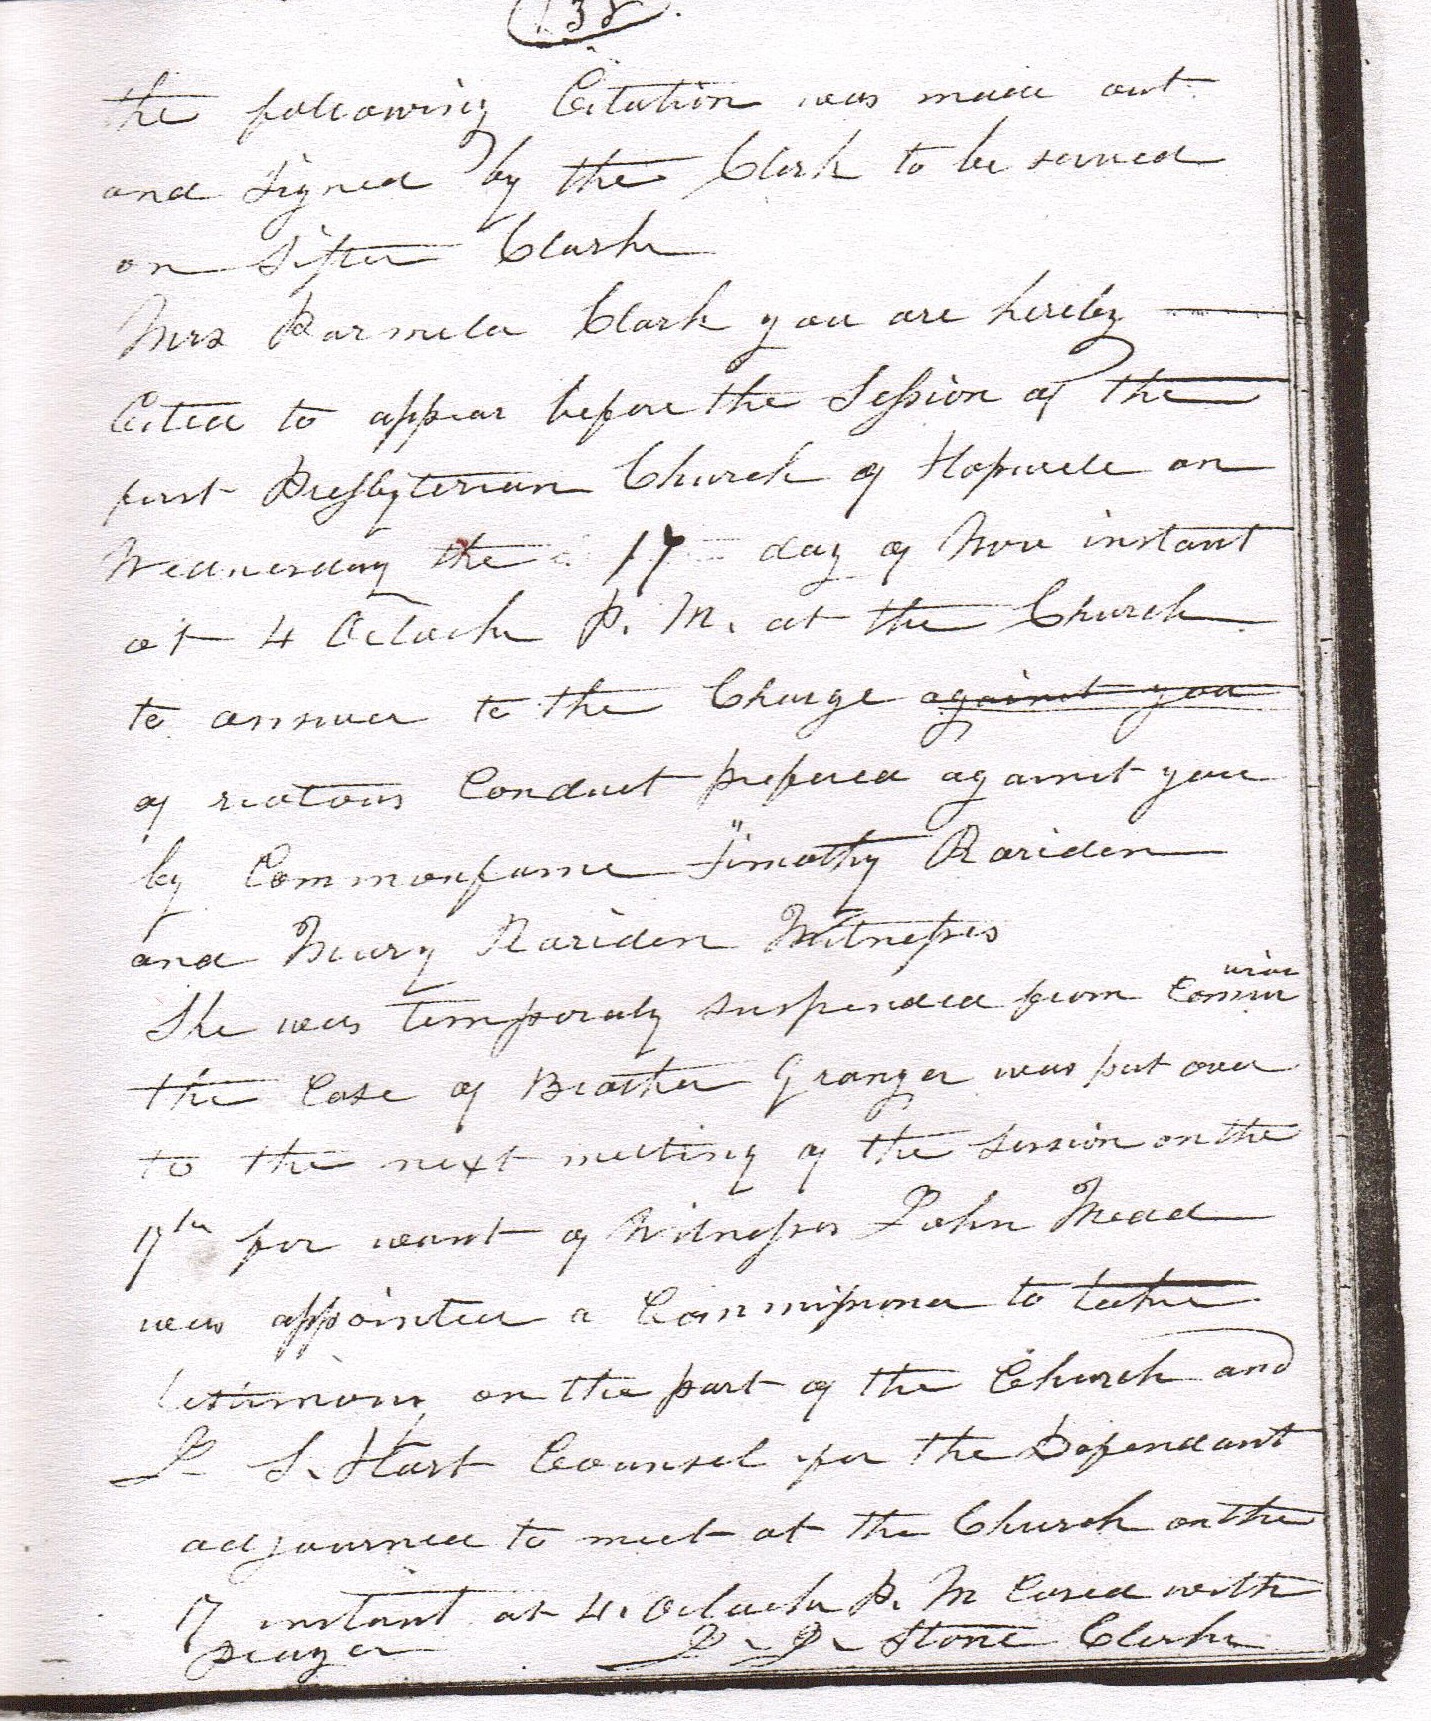 138.
the following Citation was made out
and signed by the Clerk to be served
on Sister Clark
Mrs Parmela Clark you are hereby
Cited to appear before the Session of the
first Presbyterian Church of Hopwell on
Wednesday the 17 day of Nov instant
at 4 Oclock P. M. at the Church
to answer to the Charge against you
of riotous Conduct prefered against you
by Commonfame Timothy Rariden
and Rariden Witnesses
She was temporaly suspended from Commu
nion
the Case of Brother Granger was put over
to the next meeting of the session on the
17th for want of Witnesses John Mead
was appointed a Commissioner to take
testimony on the part of the Church and
S. Hart Counsel for the Defendant
adjourned to meet at the Church on the
17 instant at 4. Oclock P. M Cosed with
prayer Stone Clerk